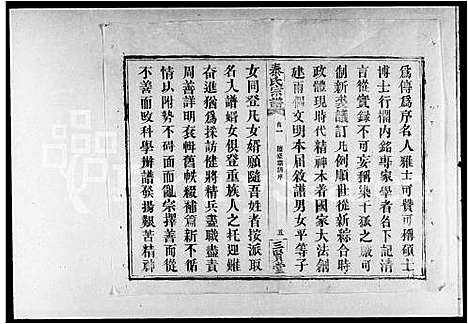 爲傳爲序名人雅士可贊可稱碩士
博士行欄內銘專家學者名下記清
言從實錄不可妄稱染干狐之厰可
制新衆議訂凡例順世從新綜合時
政體現時代精神本着國家大法創
建兩個文明本屆敘譜男女平等子
秦氏宗譜
卷一
五
三賢堂
女同登凡女婿願隨吾姓者按派取
名入譜婿女俱登重族人之托迎難
奮進猶爲採訪健將精兵盡職盡責
周善詳明衰輯舊殘新篇擇善而從
情以附勢不碍面而亂宗擇善而從
不善而改科學辦譜發揚艱苦精神